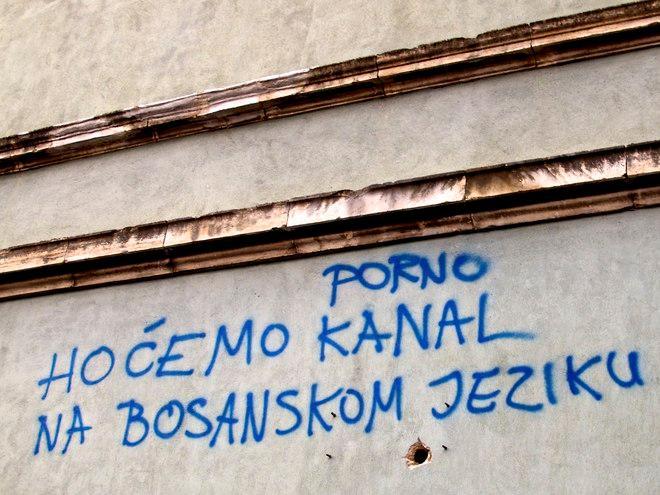 PORNO
HOĆEMO KANAL
NA BOSANSKOM JEZIKU